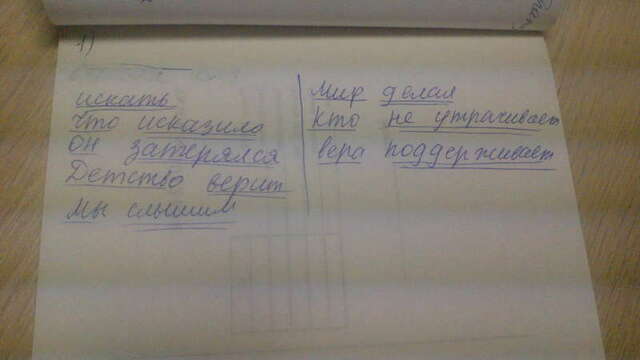 1)
искать
Что исказило
он затерялся
Детство верит
мы слышим
Мир делая
кто не утрачивает
вера поддерживает